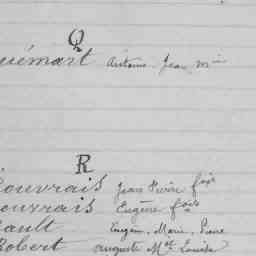 Q
uémart Antoine Jean Min
R
ouvrais Jean Pierre fois
ouvrais Eugène fois
ault Eugen. Marie. Pierre
Robert Auguste Mat Louise